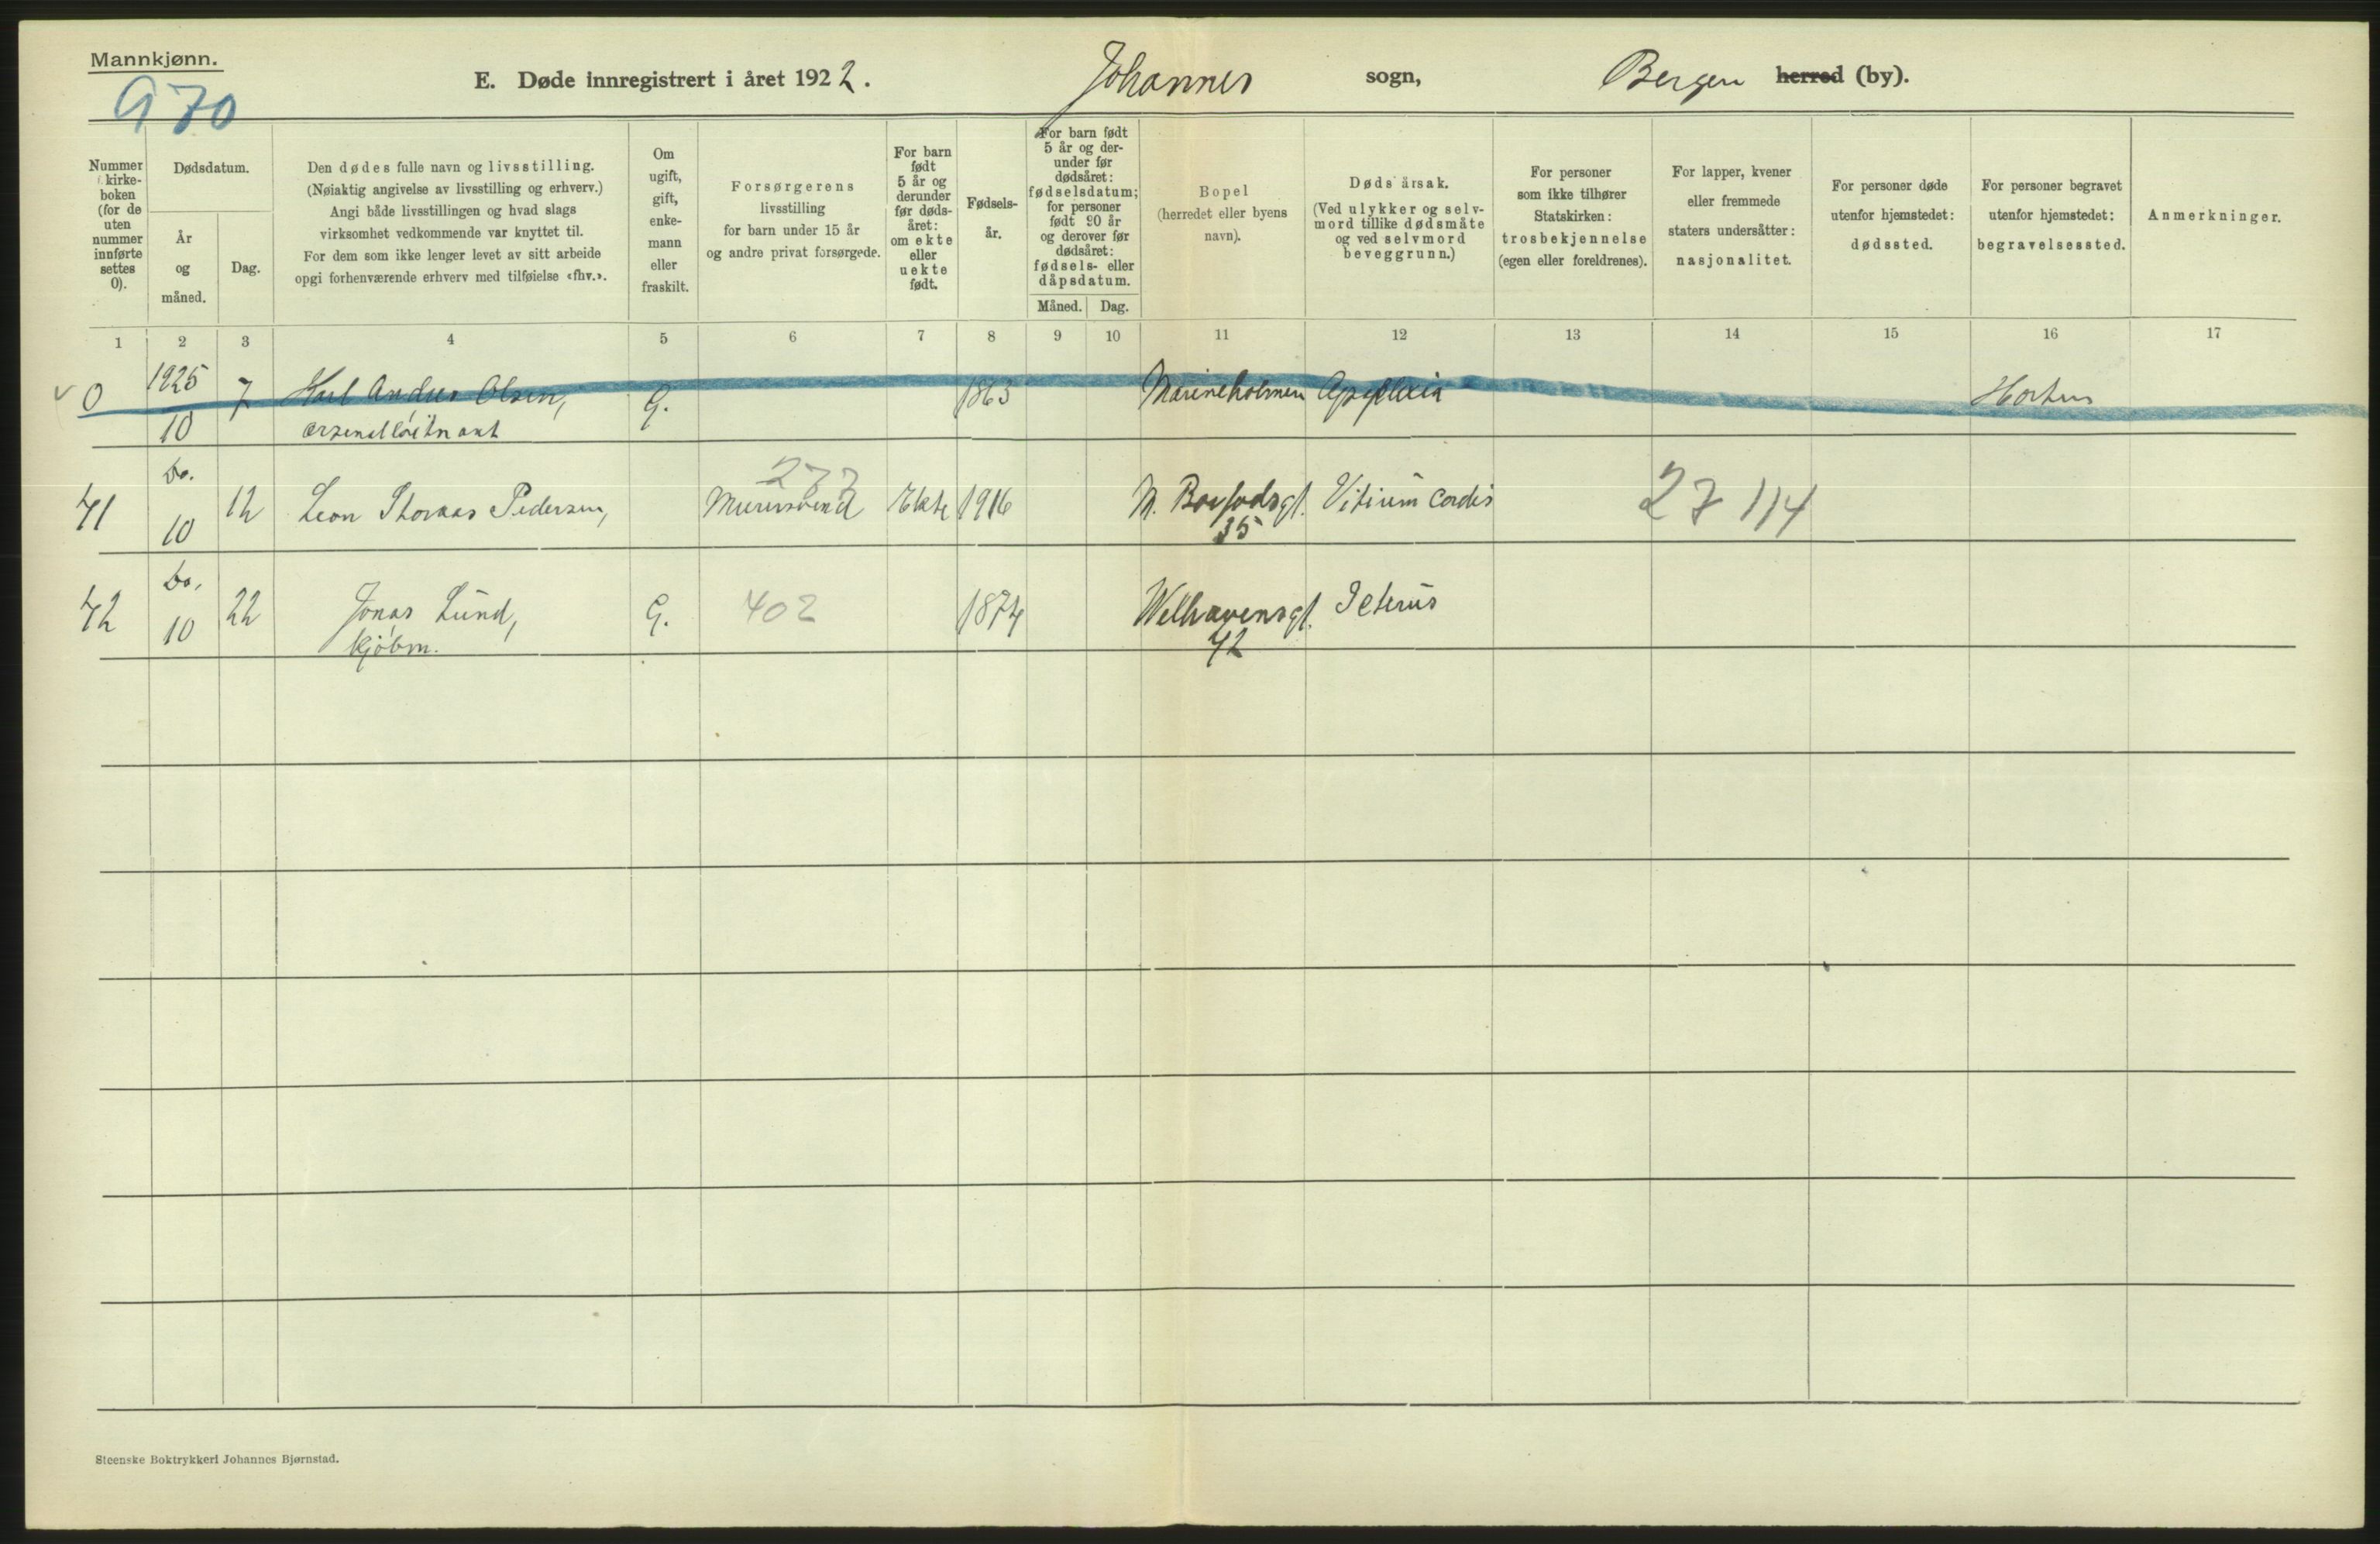 Mannkjønn.
970
E. Døde innregistrert i året 1922. Johannes sogn, Bergen herred (by).
Nummer
i kirke-
boken
(for de
uten
nummer
innførte
settes
0).
Dødsdatum.
År
og
måned.
Dag.
Den dødes fulle navn og livsstilling.
(Nøiaktig angivelse av livsstilling og erhverv.)
Angi både livsstillingen og hvad slags
virksomhet vedkommende var knyttet til.
For dem som ikke lenger levet av sitt arbeide
opgi forhenværende erhverv med tilføielse «fhv.».
Om
ugift,
gift,
enke-
mann
eller
fraskilt.
Forsørgerens
livsstilling
for barn under 15 år
og andre privat forsørgede.
For barn
født
5 år og
derunder
før døds-
året:
om ekte
eller
uekte
født.
Fødsels-
år.
For barn født
5 år og der-
under før
dødsåret:
fødselsdatum;
for personer
født 90 år
og derover før
dødsåret:
fødsels- eller
dåpsdatum.
Måned. Dag.
Bopel
(herredet eller byens
navn).
Dødsårsak.
(Ved ulykker og selv-
mord tillike dødsmåte
og ved selvmord
beveggrunn.)
For personer
som ikke tilhører
Statskirken:
trosbekjennelse
(egen eller foreldrenes).
For lapper, kvener
eller fremmede
staters undersåtter:
nasjonalitet.
For personer døde
utenfor hjemstedet:
dødssted.
For personer begravet
utenfor hjemstedet:
begravelsessted.
Anmerkninger.
1 2 3 4 5 6 7 8 9 10 11 12 13 14 15 16 17
0 1925 7 Karl Andreas Olsen, G. 1863 Marineholmen Apoplexia Horten
10 arsenalløitnant
do. 277
41 12 Leon Thomas Pedersen, Murersvend Ekte 1916 Vitium Cordis 27 114
10 35
do.
42 22 Jonas Lund, G. 402 1874 Welhavensgt. Icterus
10 kjøbm. 42
Steenske Boktrykkeri Johannes Bjørnstad.